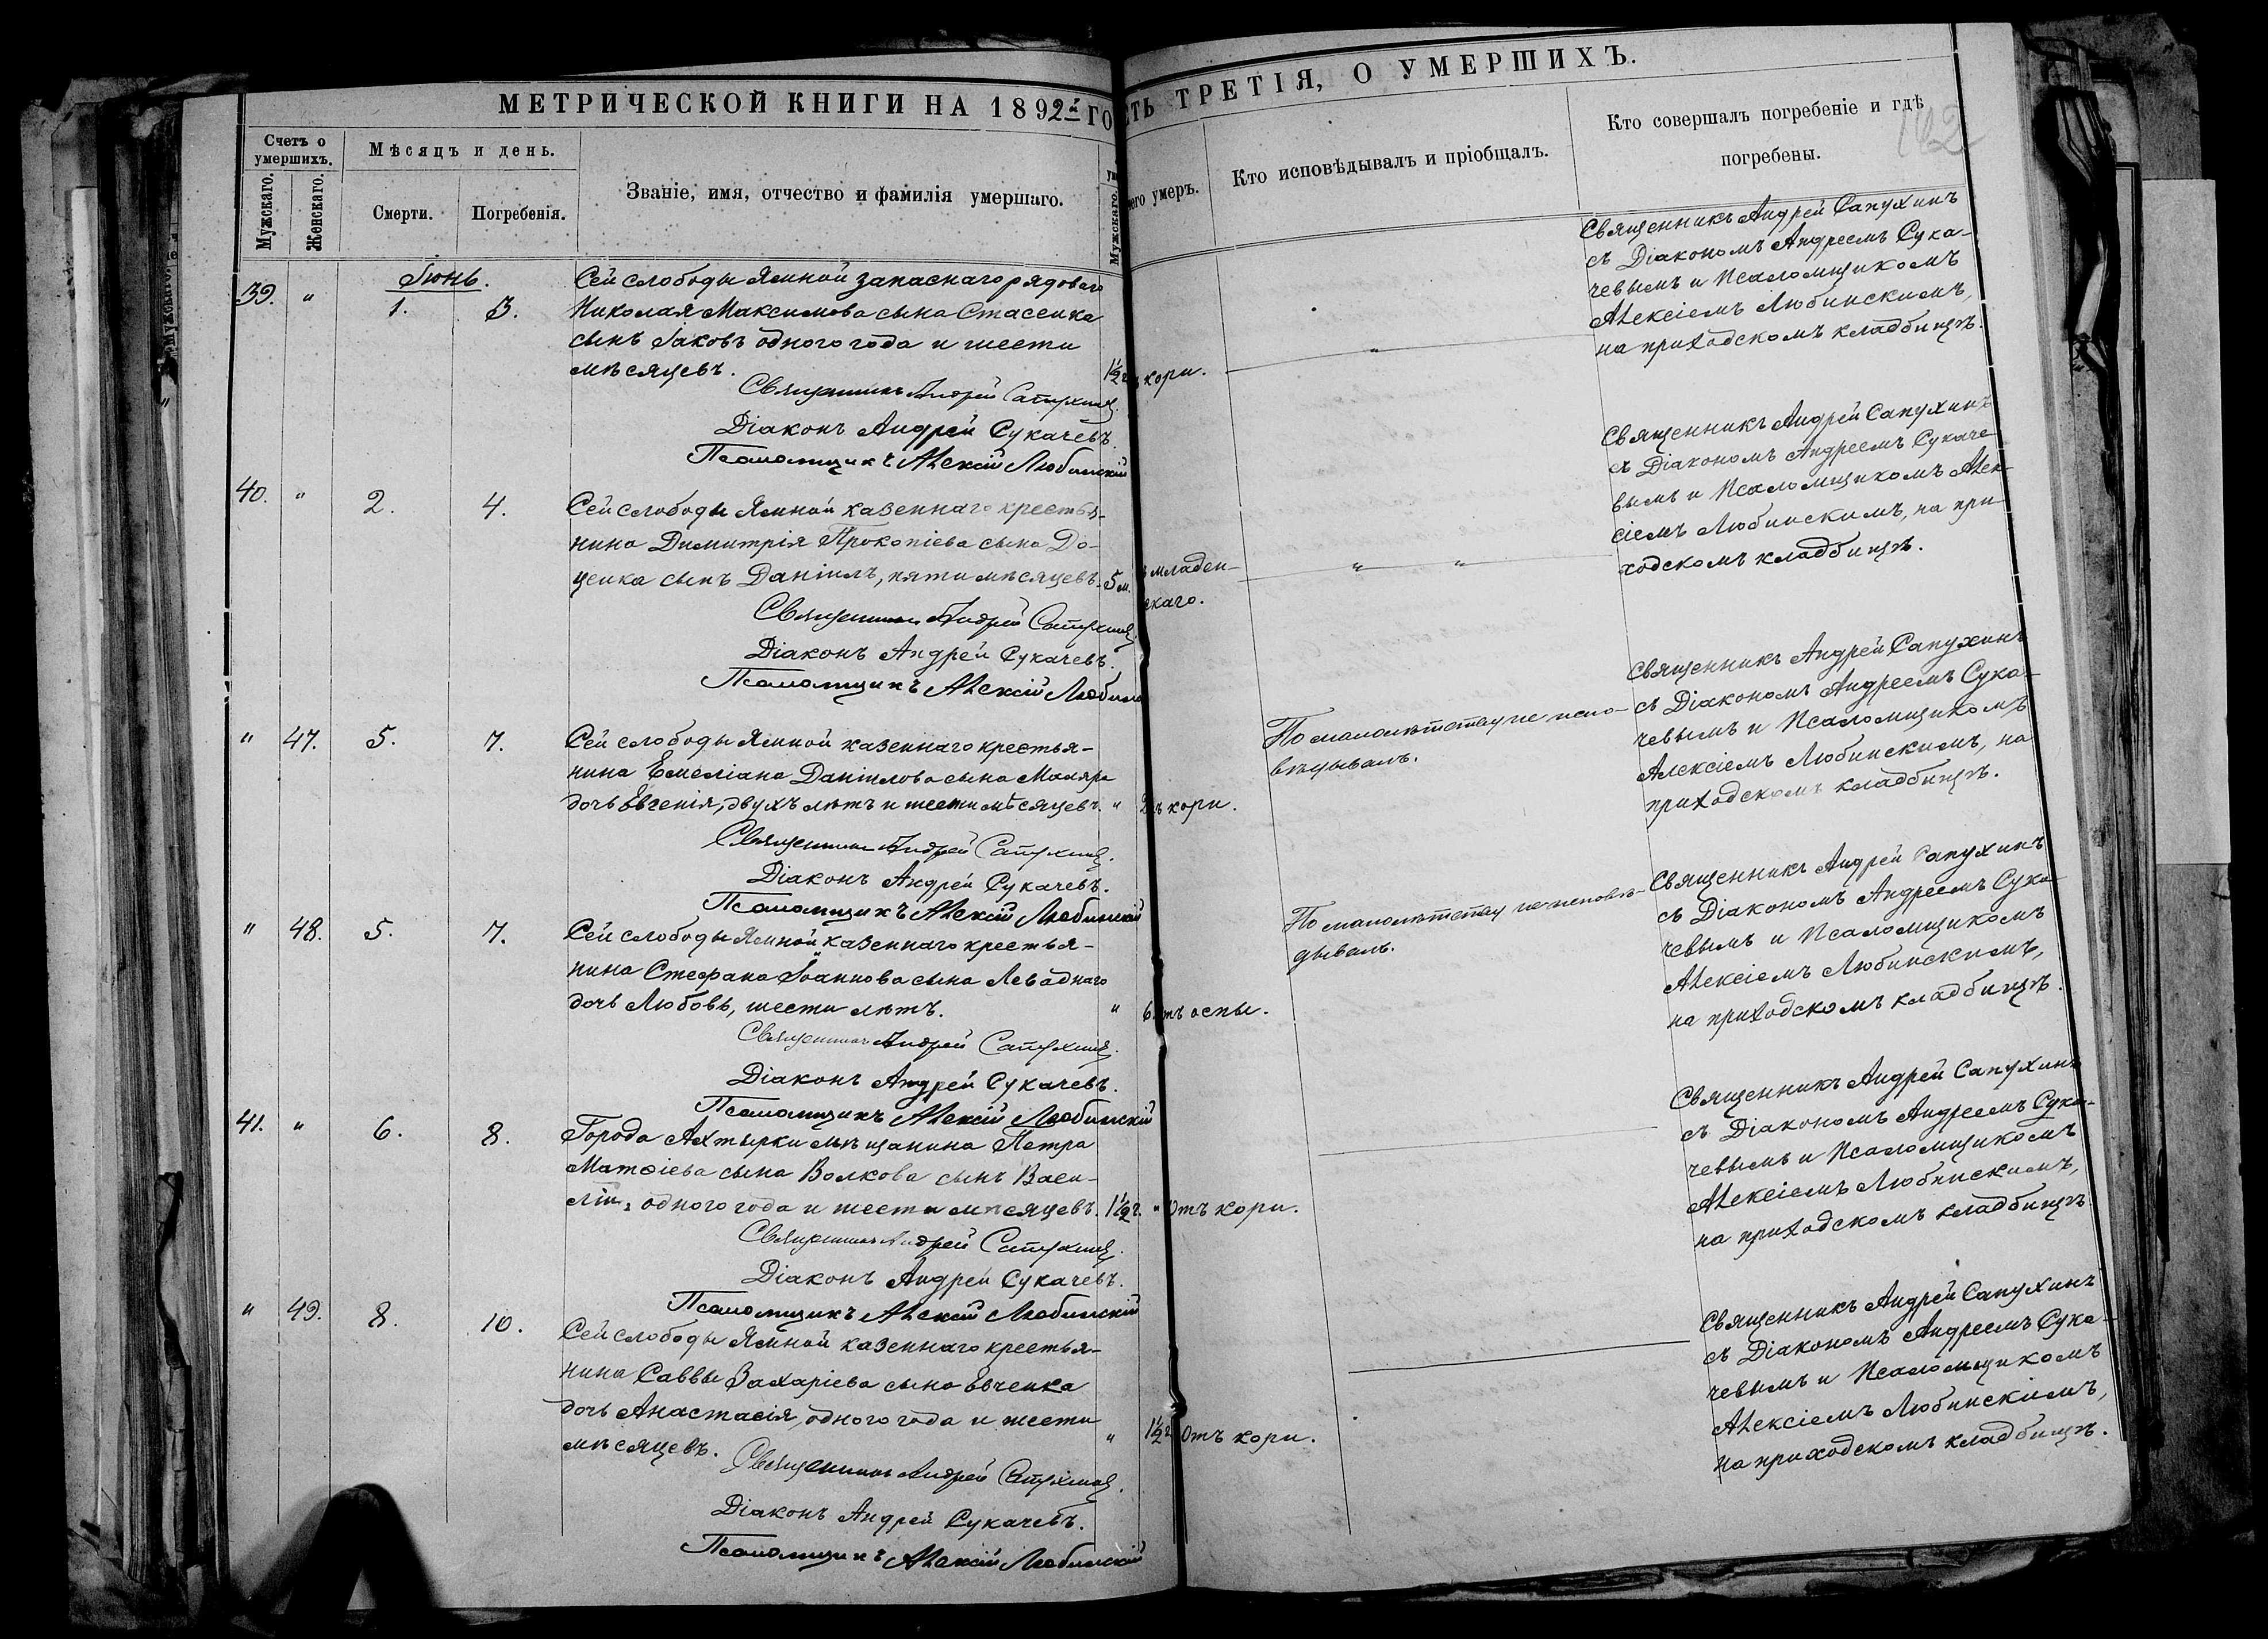 МЕТРИЧЕСКОЙ КНИГИ НА 1892й ГО
Счетъ о умершихъ.
Мужскаго.
Женскаго.
Мѣсяцъ и день.
Смерти.
Погребенія.
Званіе, имя, отчество и фамилія умершаго.
Мужскаго.
Іюнь.
39. " 1. 3.
Сей слободы Ямной запаснаго рядоваго
Николая Максимова сына Стасенка
сынъ Іаковъ одного года и шести
мѣсяцевъ. 1½ г.
Священникъ Андрей Сапухинъ.
Діаконъ Андрей Сукачевъ.
Псаломщикъ Алексій Любинскій
40. " 2. 4.
Сей слободы Ямной казеннаго крестья-
нина Димитрія Прокопіева сына До-
ценка сынъ Даніилъ, пяти мѣсяцевъ. 5 м.
Священникъ Андрей Сапухинъ.
Діаконъ Андрей Сукачевъ.
Псаломщикъ Алексій Любинс
" 47. 5. 7.
Сей слободы Ямной казеннаго крестья-
нина Емеліана Даніилова сына Маляра
дочь Евгенія, двухъ лѣтъ и шести мѣсяцевъ. "
Священникъ Андрей Сапухинъ.
Діаконъ Андрей Сукачевъ.
Псаломщикъ Алексій Любинскій
" 48. 5. 7.
Сей слободы Ямной казеннаго крестья-
нина Стефана Іоаннова сына Левадного
дочь Любовь, шести лѣтъ. " 6
Священникъ Андрей Сапухинъ.
Діаконъ Андрей Сукачевъ.
Псаломщикъ Алексій Любинскій
41. " 6. 8.
Города Ахтырки мѣщанина Петра
Матѳіева сына Волкова сынъ Васи-
лій, одного года и шести мѣсяцевъ. 1½ г. "
Священникъ Андрей Сапухинъ.
Діаконъ Андрей Сукачевъ.
Псаломщикъ Алексій Любинскій
" 49. 8. 10.
Сей слободы Ямной казеннаго крестья-
нина Саввы Захаріева сына Овченка
дочь Анастасія, одного года и шести
мѣсяцевъ. " 1½ г.
Священникъ Андрей Сапухинъ.
Діаконъ Андрей Сукачевъ.
Псаломщикъ Алексій Любинскій
СТЬ ТРЕТІЯ, О УМЕРШИХЪ.
142
чего умеръ.
Кто исповѣдывалъ и пріобщалъ.
Кто совершалъ погребеніе и гдѣ
погребены.
кори.
"
Священникъ Андрей Сапухинъ
съ Діакономъ Андреемъ Сука-
чевымъ и Псаломщикомъ
Алексіемъ Любинскимъ,
на приходскомъ кладбищѣ.
младен-
скаго.
" "
Священникъ Андрей Сапухинъ
съ Діакономъ Андреемъ Сукаче-
вымъ и Псаломщикомъ Алек-
сіемъ Любинскимъ, на при-
ходскомъ кладбищѣ.
кори.
По малолѣтству не испо-
вѣдывалъ.
Священникъ Андрей Сапухинъ
съ Діакономъ Андреемъ Сука-
чевымъ и Псаломщикомъ
Алексіемъ Любинскимъ, на
приходскомъ кладбищѣ.
тъ оспы.
По малолѣтству не исповѣ-
дывалъ.
Священникъ Андрей Сапухинъ
съ Діакономъ Андреемъ Сука-
чевымъ и Псаломщикомъ
Алексіемъ Любинскимъ,
на приходскомъ кладбищѣ.
Отъ кори.
Священникъ Андрей Сапухинъ
съ Діакономъ Андреемъ Сука-
чевымъ и Псаломщикомъ
Алексіемъ Любинскимъ,
на приходскомъ кладбищѣ
Отъ кори.
Священникъ Андрей Сапухинъ
съ Діакономъ Андреемъ Сука-
чевымъ и Псаломщикомъ
Алексіемъ Любинскимъ,
на приходскомъ кладбищѣ.